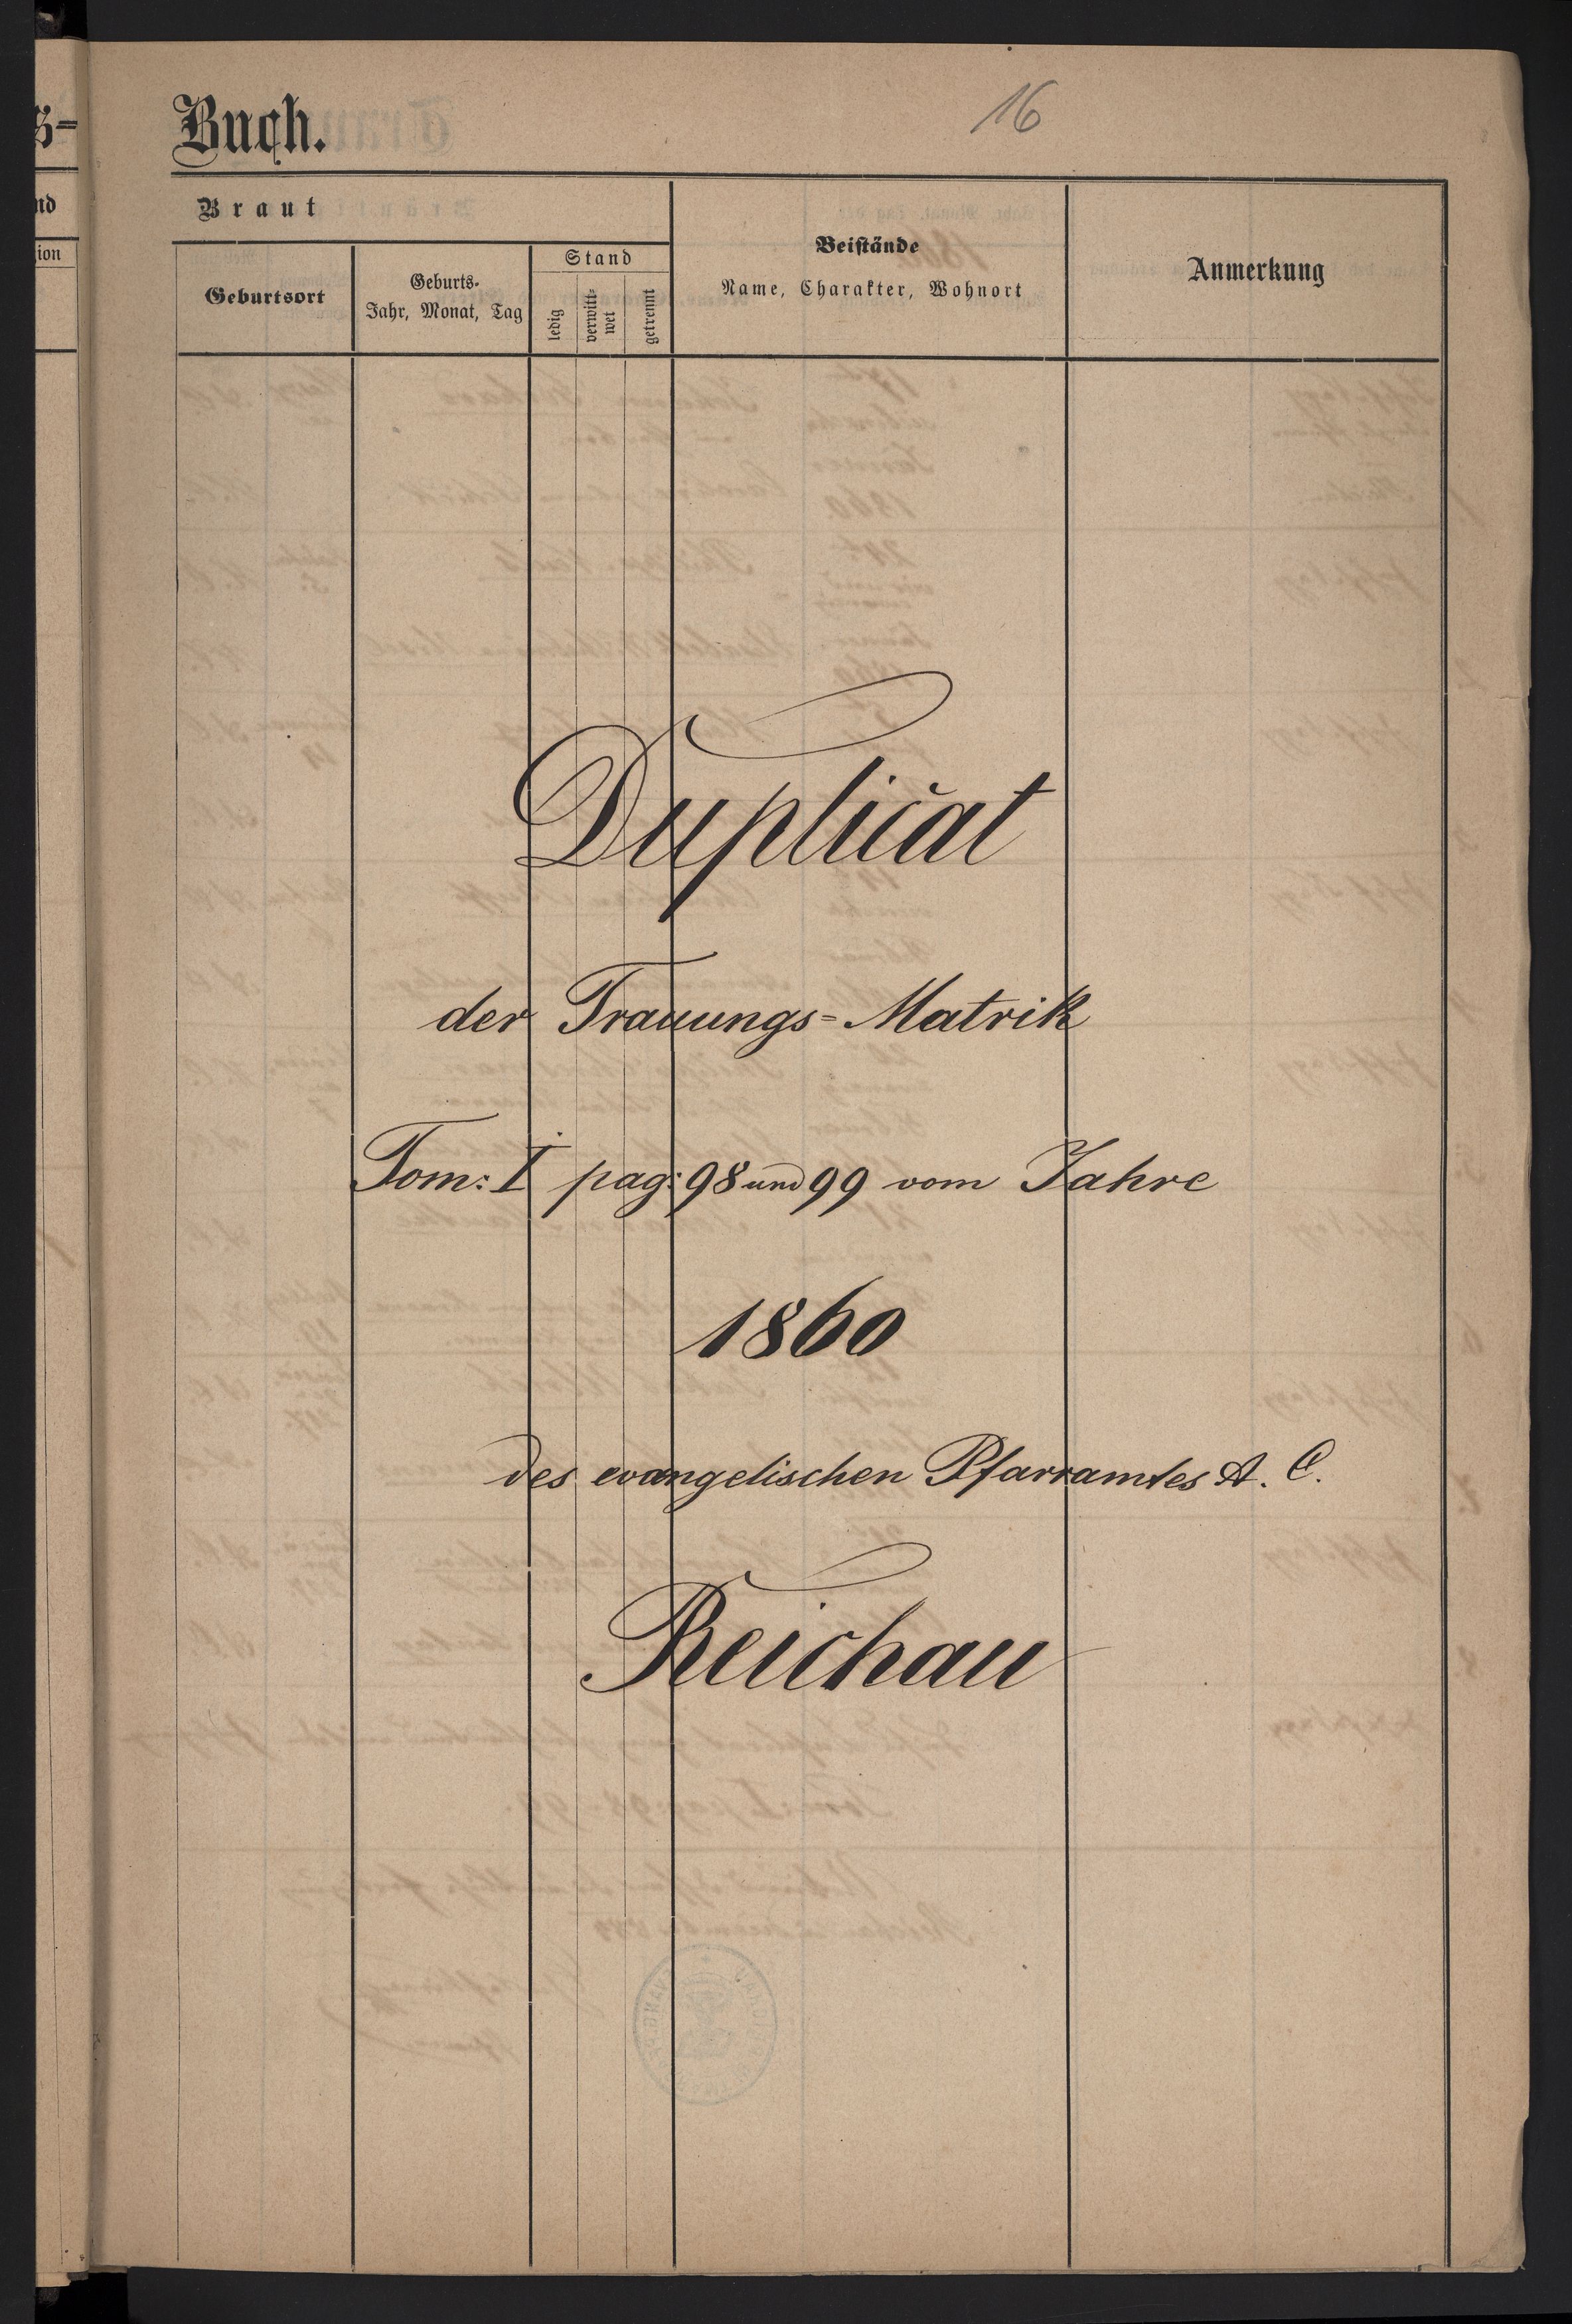 16
Buch.
Braut
Geburtsort
Geburts-
Jahr, Monat, Tag
Stand
ledig
verwitt-
wet
getrennt
Beistände
Name, Charakter, Wohnort
Anmerkung
Duplicat
der Trauungs-Matrik
Tom: I pag: 98 und 99 vom Jahre
1860
des evangelischen Pfarramtes A. C.
Reichau